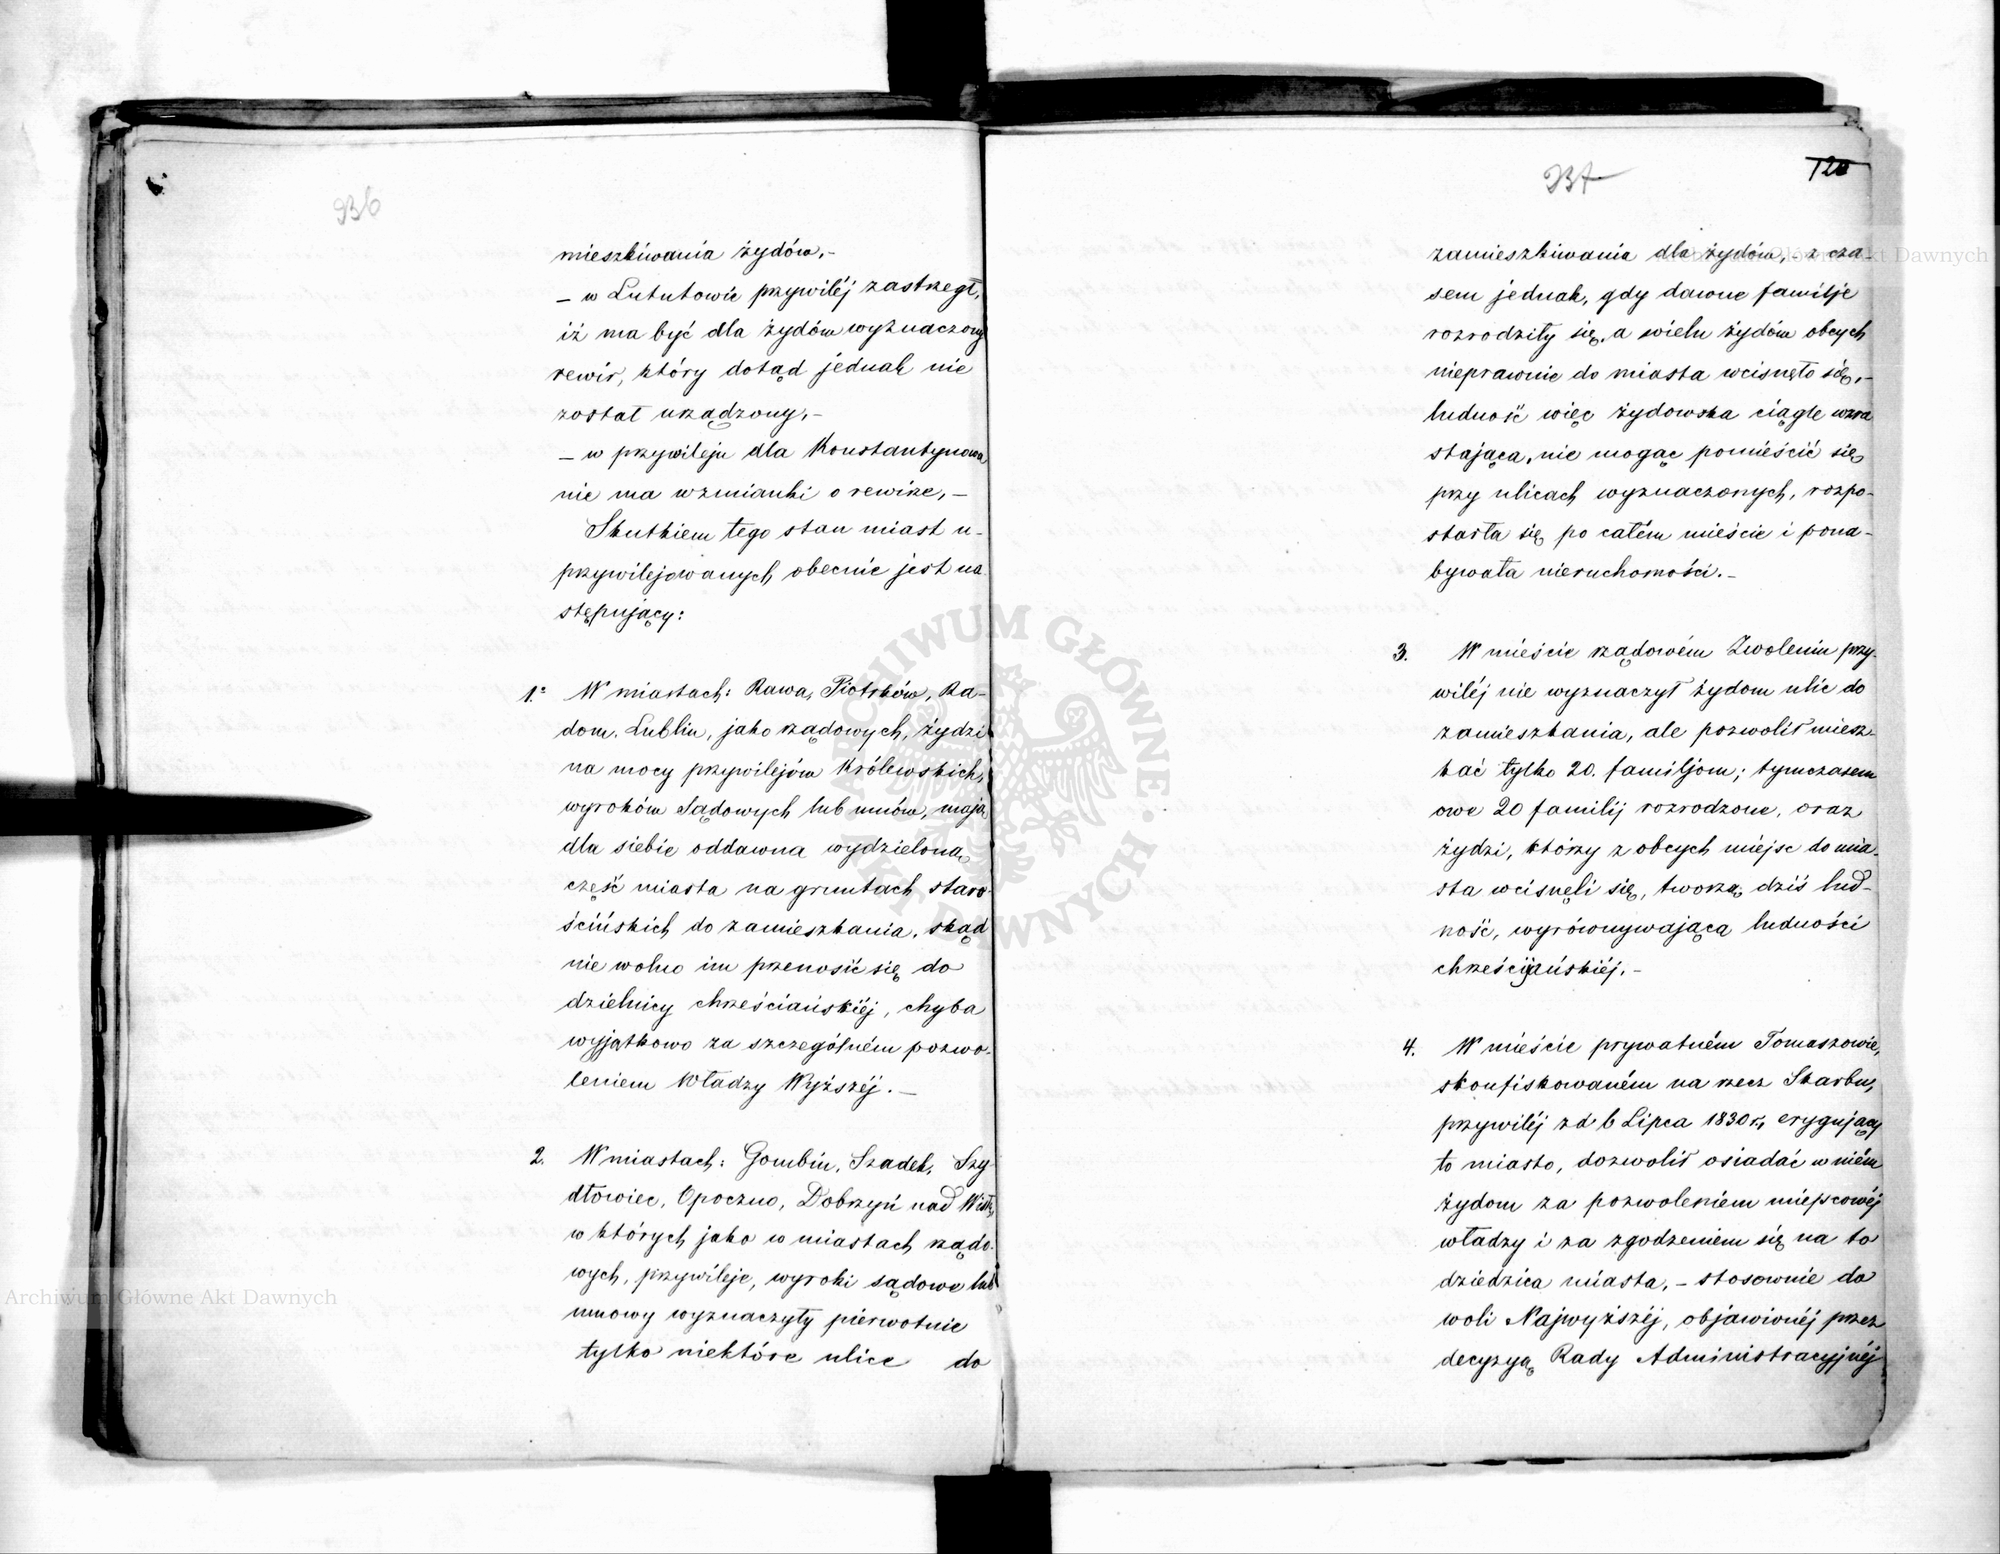 936
mieszkiwania żydów,-
- w Lututowie przywiléj zastrzegł,
iż ma być dla żydów wyznaczony
rewir, który dotąd jednak nie
został urządzony,-
- w przywileju dla Konstantynowa
nie ma wzmianki o rewirze,-
Skutkiem tego stan miast u-
przywilejowanych obecnie jest na
stępujący:
1. W miastach: Rawa, Piotrków, Ra-
dom, Lublin, jako rządowych, żydzi
na mocy przywilejów Królewskich,
wyroków Sądowych lub umów, mają
dla siebie oddawna wydzieloną
część miasta na gruntach staro-
ścińskich do zamieszkania, skąd
nie wolno im przenosić się do
dzielnicy chrześciańskiéj, chyba
wyjątkowo za szczególném pozwo-
leniem Władzy Wyższéj.-
2. W miastach: Gombin, Szadek, Szy-
dłowiec, Opoczno, Dobrzyń nad Wisłą,
w których jako w miastach rządo-
wych, przywileje, wyroki sądowe lub
umowy wyznaczyły pierwotnie
tylko niektóre ulice do
937
120
zamieszkiwania dla żydów,- z cza
sem jednak, gdy dawne familje
rozrodziły się, a wielu żydów obcych
nieprawnie do miasta wcisnęło się,-
ludność więc żydowska ciągle wzra
stająca, nie mogąc pomieścić się
przy ulicach wyznaczonych, rozpo-
starła się po całém mieście i pona-
bywała nieruchomości.-
3. W mieście rządowém Zwoleniu przy-
wiléj nie wyznaczył żydom ulic do
zamieszkania, ale pozwolił miesz-
kać tylko 20. familjom; tymczasem
owe 20 familij rozrodzone, oraz
żydzi, którzy z obcych miejsc do mia-
sta wcisnęli się, tworzą dziś lud-
ność, wyrównywającą ludności
chrześcijańskiéj.-
4. W mieście prywatném Tomaszowie,
skonfiskowaném na rzecz Skarbu,
przywiléj zd 6 Lipca 1830 r., erygujący
to miasto, dozwolił osiadać w niém
żydom za pozwoleniem miejscowéj
władzy i za zgodzeniem się na to
dziedzica miasta,- stosownie do
woli Najwyższéj, objawionéj przez
decyzyą Rady Administracyjnéj
Archiwum Główne Akt Dawnych
Archiwum Główne Akt Dawnych
ARCHIWUM GŁÓWNE AKT DAWNYCH